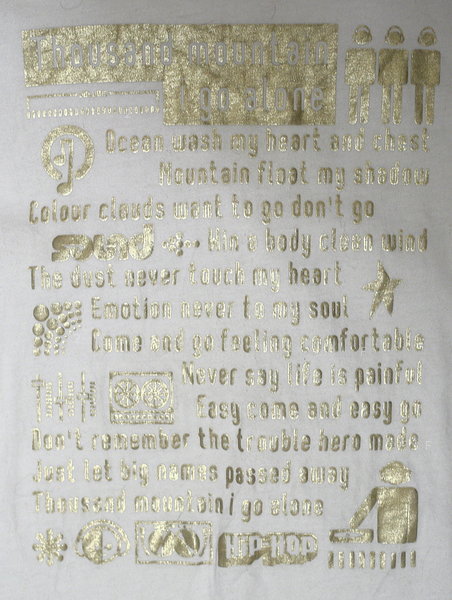 Thousand mountain
i go alone
Ocean wash my heart and chest
Mountain float my shadow
Colour clouds want to go don't go
sound
Win a body clean wind
The dust never touch my heart
Emotion never to my soul
Come and go feeling comfortable
Never say life is painful
Easy come and easy go
Don't remember the trouble hero made
Just let big names passed away
Thousand mountain i go alone
HIP-HOP